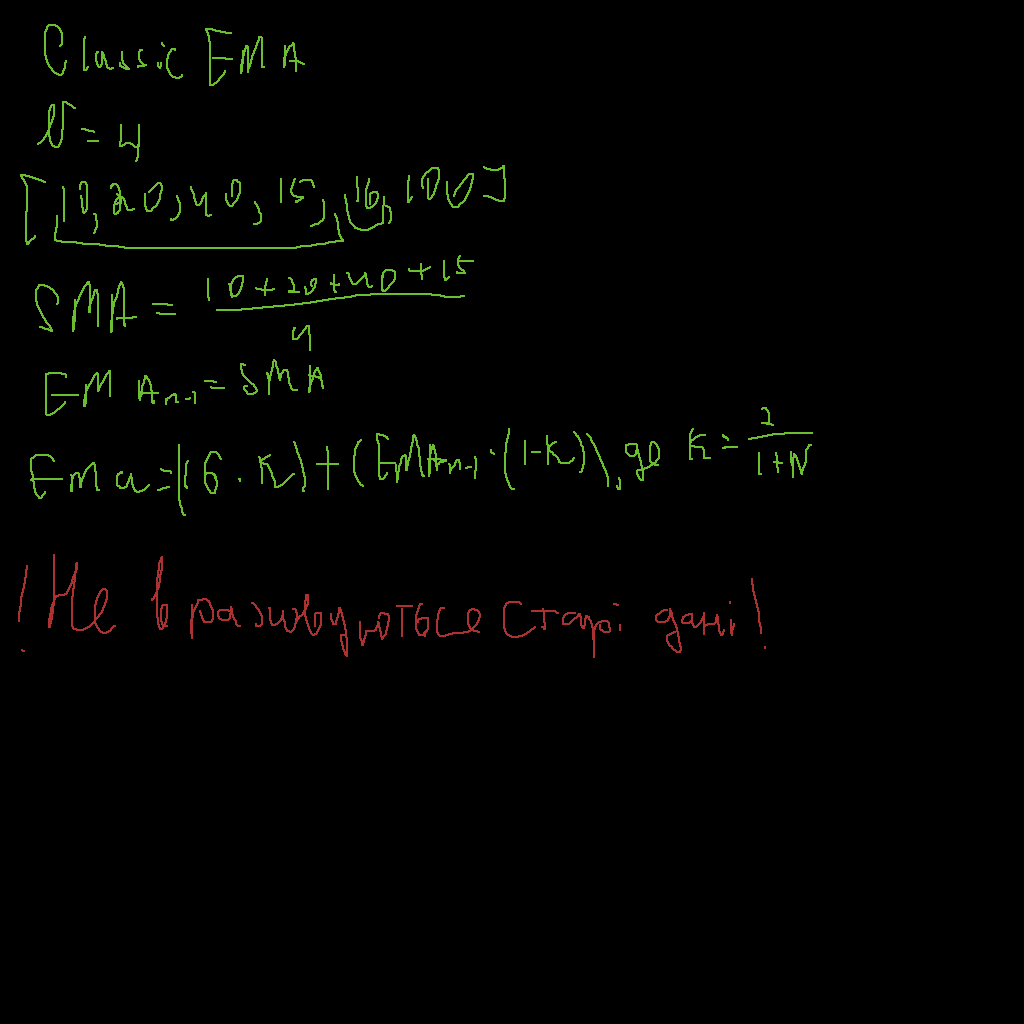 Classic EMA
N = 4
[10, 20, 40, 15, 16, 100]
SMA = (10 + 20 + 40 + 15) / 4
EMA n-1 = SMA
Ema = (16 · K) + (EMA n-1 · (1-K)), де K = 2 / (1+N)
! Не враховуються старі дані !